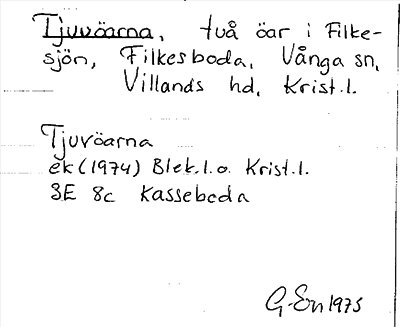 Tjuvöarna, två öar i Filke-
sjön, Filkesboda, Vånga sn,
Villands hd, Krist.l.
Tjuvöarna
ek (1974) Blek.l.o. Krist.l.
3E 8c Kasseboda
G. En 1975